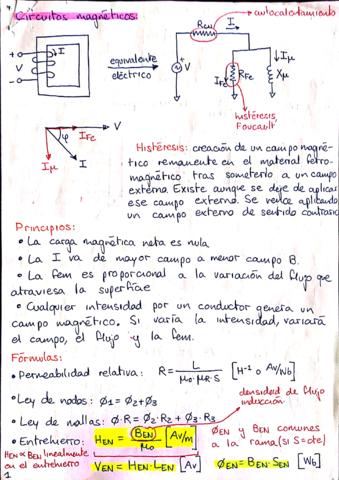 Circuitos magnéticos:
autocalentamiento
Rcu
I
+
V
-
I
equivalente
eléctrico
V
IFe
RFe
Iμ
Xμ
histéresis,
Foucault
V
φ
IFe
Iμ
I
Histéresis: creación de un campo magné-
tico remanente en el material ferro-
magnético tras someterlo a un campo
externo. Existe aunque se deje de aplicar
ese campo externo. Se vence aplicando
un campo externo de sentido contrario
Principios:
• La carga magnética neta es nula
• La I va de mayor campo a menor campo B.
• La fem es proporcional a la variación del flujo que
atraviesa la superficie
• Cualquier intensidad por un conductor genera un
campo magnético. Si varía la intensidad, variará
el campo, el flujo y la fem.
Fórmulas:
• Permeabilidad relativa: R = L / μo·μR·S [H⁻¹ o Av/Wb]
• Ley de nodos: ø1 = ø2 + ø3
densidad de flujo
inducción
• Ley de mallas: ø·R = ø2·R2 + ø3·R3
• Entrehierro: HEN = BEN / μo [Av/m]
øEN y BEN comunes
a la rama (si S=cte)
HEN ∝ BEN linealmente
en el entrehierro
VEN = HEN·LEN [Av]
øEN = BEN·SEN [Wb]
1